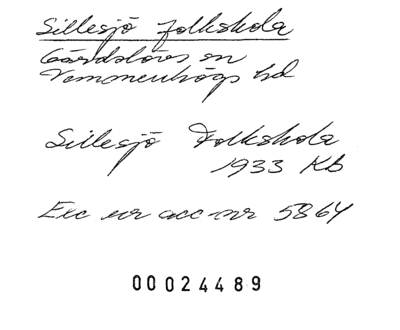 Sillesjö folkskola
Gärdslövs sn
Vemmenhögs hd
Sillesjö Folkskola
1933 Kb
Exc ur acc nr 5864
00024489